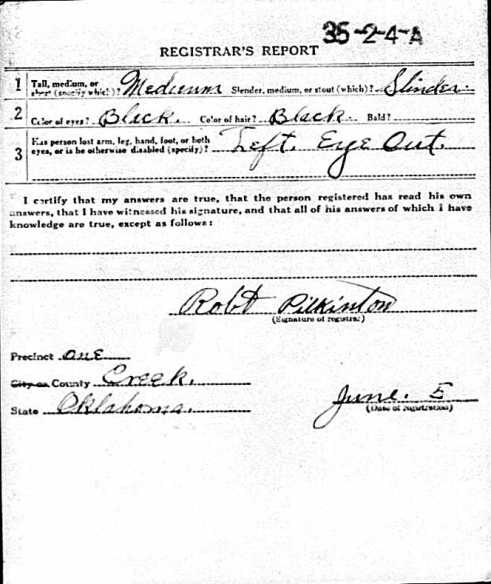 35-2-4-A
REGISTRAR'S REPORT
1 Tall, medium, or short (specify which)? Medium Slender, medium, or stout (which)? Slinder.
2 Color of eyes? Black. Color of hair? Black. Bald?
3 Has person lost arm, leg, hand, foot, or both
eyes, or is he otherwise disabled (specify)? Left. Eye Out.
I certify that my answers are true, that the person registered has read his own
answers, that I have witnessed his signature, and that all of his answers of which I have
knowledge are true, except as follows:
Robt Pilkinton
(Signature of registrar)
Precinct one
City or County Creek.
State Oklahoma. June. 5
(Date of registration)